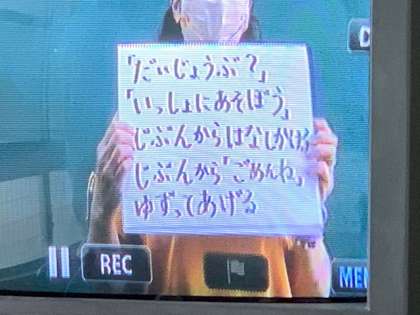 「だいじょうぶ?」
「いっしょにあそぼう」
じぶんからはなしかける
じぶんから「ごめんね」
ゆずってあげる
REC